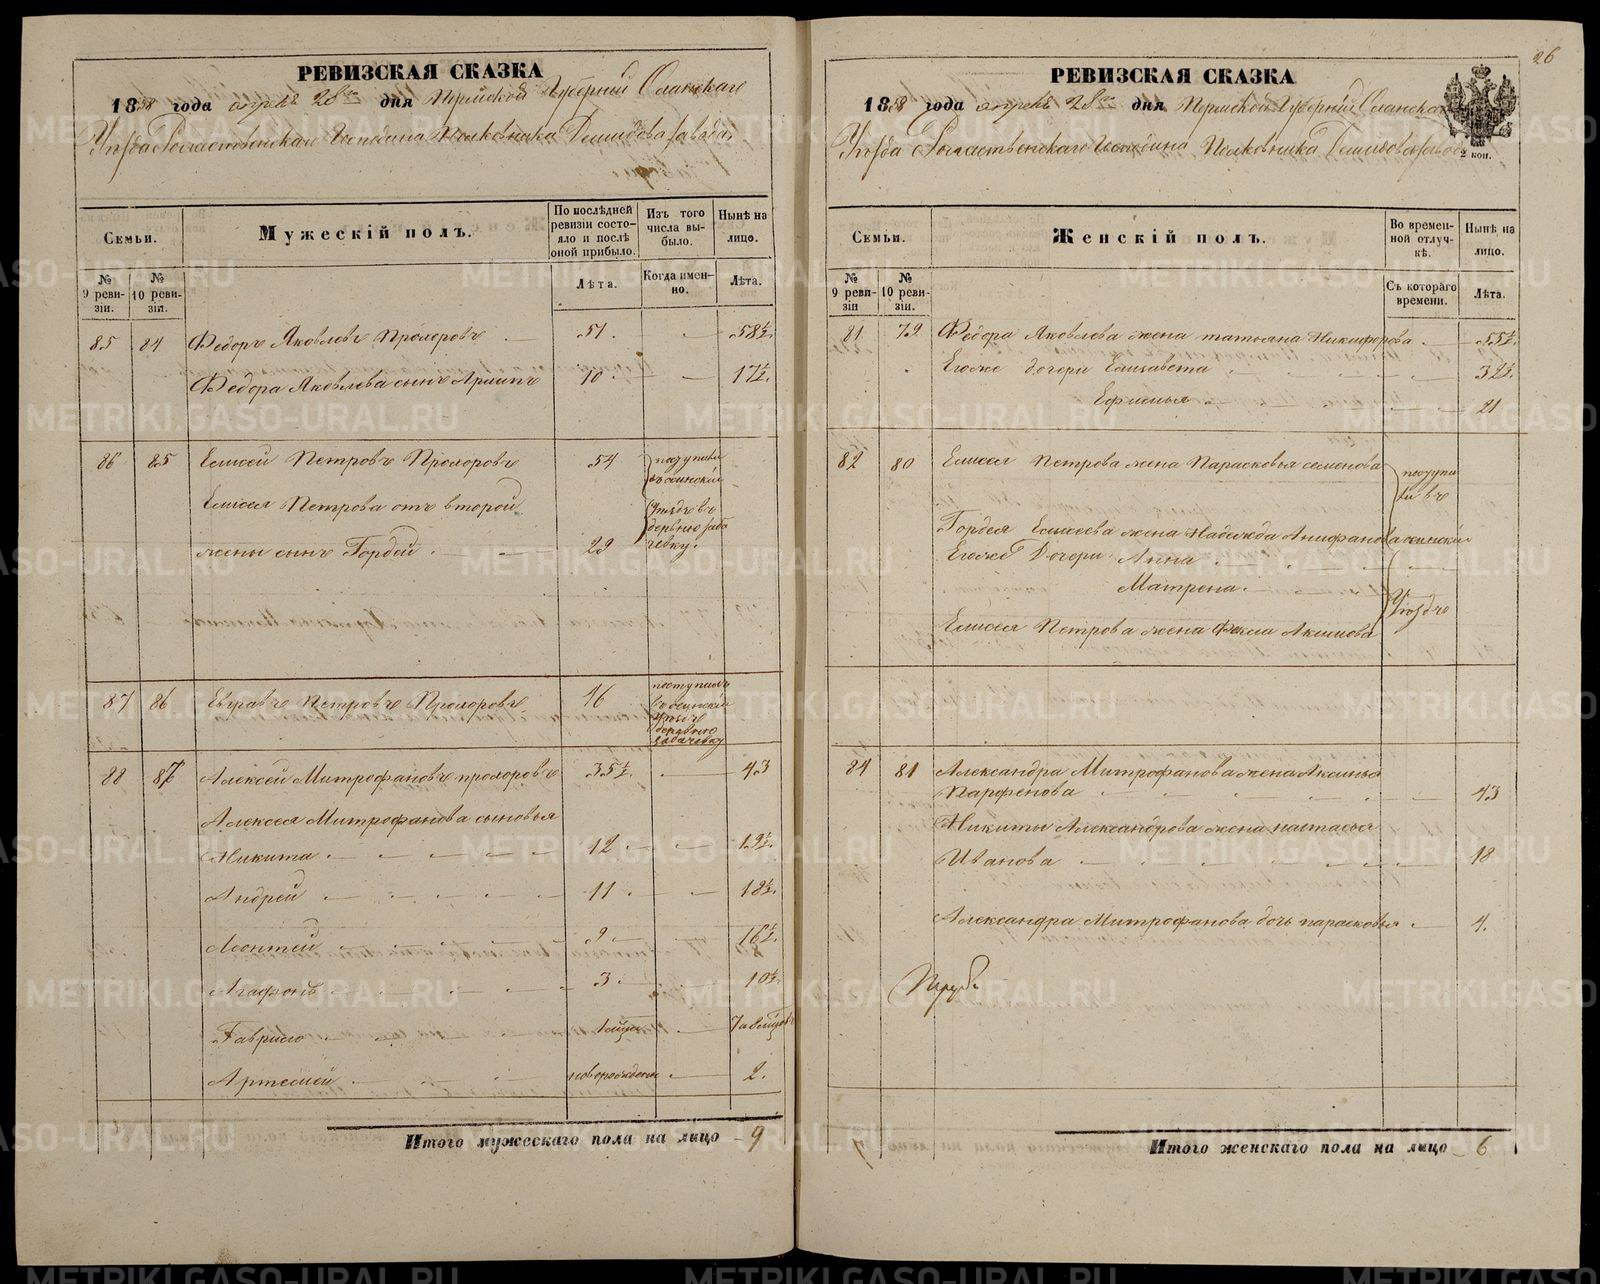 РЕВИЗСКАЯ СКАЗКА
1858 года апреля 28го дня Пермской Губернии Оханскаго
Уезда Рождественскаго Господина Полковника Демидова завода
Семьи.
Мужескій полъ.
По послѣдней ревизіи состояло и послѣ оной прибыло.
Изъ того числа выбыло.
Нынѣ на лицо.
№ 9 ревизіи.
№ 10 ревизіи.
Лѣта.
Когда именно.
Лѣта.
85 84 Федоръ Яковлевъ Прохоровъ 51. 58½.
Федора Яковлева сынъ Архипъ 10. 17½.
86 85 Елисей Петровъ Прохоровъ 54
Елисея Петрова отъ второй
жены сынъ Гордей 29
87 86 Евграфъ Петровъ Прохоровъ 16
88 87 Алексей Митрофановъ Прохоровъ 35½. 43
Алексея Митрофанова сыновья
Никита 12 19½.
Андрей 11. 18½.
Леонтей 9 16½.
Агафонъ 3 10½.
Гаврило
Артемей новорожденъ 2.
Итого мужескаго пола на лицо 9
26
РЕВИЗСКАЯ СКАЗКА
1858 года апреля 28го дня Пермской Губернии Оханскаго
Уезда Рождественскаго Господина Полковника Демидова завода
2 коп.
Семьи.
Женскій полъ.
Во временной отлучкѣ.
Нынѣ на лицо.
№ 9 ревизіи
№ 10 ревизіи.
Съ котораго времени.
Лѣта.
81 79 Федора Яковлева жена татьяна Никифорова 55½.
Егоже дочери Елизавета 32½.
Ефимья 21
82 80 Елисея Петрова жена Парасковья семенова
Гордея Елисеева жена Надежда Анифанова
Егоже Дочери Анна
Матрена.
Елисея Петрова жена Фекла Акимова
84 81 Александра Митрофанова жена Аксинья
Парфенова 43
Никиты Александрова жена настасья
Иванова 18
Александра Митрофанова дочь парасковья 4.
Итого женскаго пола на лицо 6
METRIKI.GASO-URAL.RU